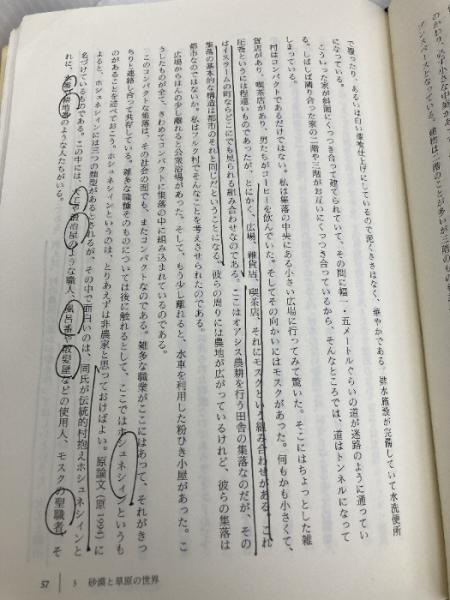 で覆ったり、あるいは白い漆喰仕上げにしているので泥くささはなく、華やかである。排水施設が完備していて水洗便所
になっている。
こういった家が斜面にくっつき合って建てられていて、その間に幅一・五メートルぐらいの道が迷路のように通ってい
る。しばしば隣り合った家の二階や三階がお互いにくっつき合っているから、そんなところでは、道はトンネルになって
しまっている。
村はコンパクトであるだけではない。私は集落の中央にある小さい広場に行ってみて驚いた。そこにはちょっとした雑
貨店があり、喫茶店があり、男たちがコーヒーを飲んでいた。そしてその向かいにはモスクがあった。何もかも小さくて、
圧巻というには程遠いものであったが、とにかく、広場、雑貨店、喫茶店、それにモスクという組み合わせがある。これ
はイスラームの町ならどこにでも見られる組み合わせなのである。ここはオアシス農耕を行う田舎の集落なのだが、その
集落の基本的な構造は都市のそれと同じだということになる。彼らの周りには農地が広がっているけれど、彼らの集落は
都市なのではないか。私はツルク村でそんなことを考えさせられたのである。
広場からほんの少し離れると公衆浴場があった。そして、もう少し離れると、水車を利用した粉ひき小屋があった。こ
うしたものが全て、きわめてコンパクトに集落の中に組み込まれているのである。
このコンパクトな集落は、その社会の面でも、またコンパクトなのである。雑多な職業がここにはあって、それがきっ
ちりと連絡し合って共存している。雑多な職種そのものについては後で触れるとして、ここではホシュネシインというも
のがあることを述べておこう。ホシュネシインというのは、とりあえずは非農家と思っておけばよい。原論文（原 1995）に
よると、ホシュネシインには三つの類型があるとされるが、その中で面白いのは、同氏が伝統的村抱えホシュネシインと
名づけているものである。この中には、大工や鍛冶屋のような職人、風呂番や散髪屋などの使用人、モスクの聖職者、そ
れに、のような人たちがいる。
57　5　砂漠と草原の世界